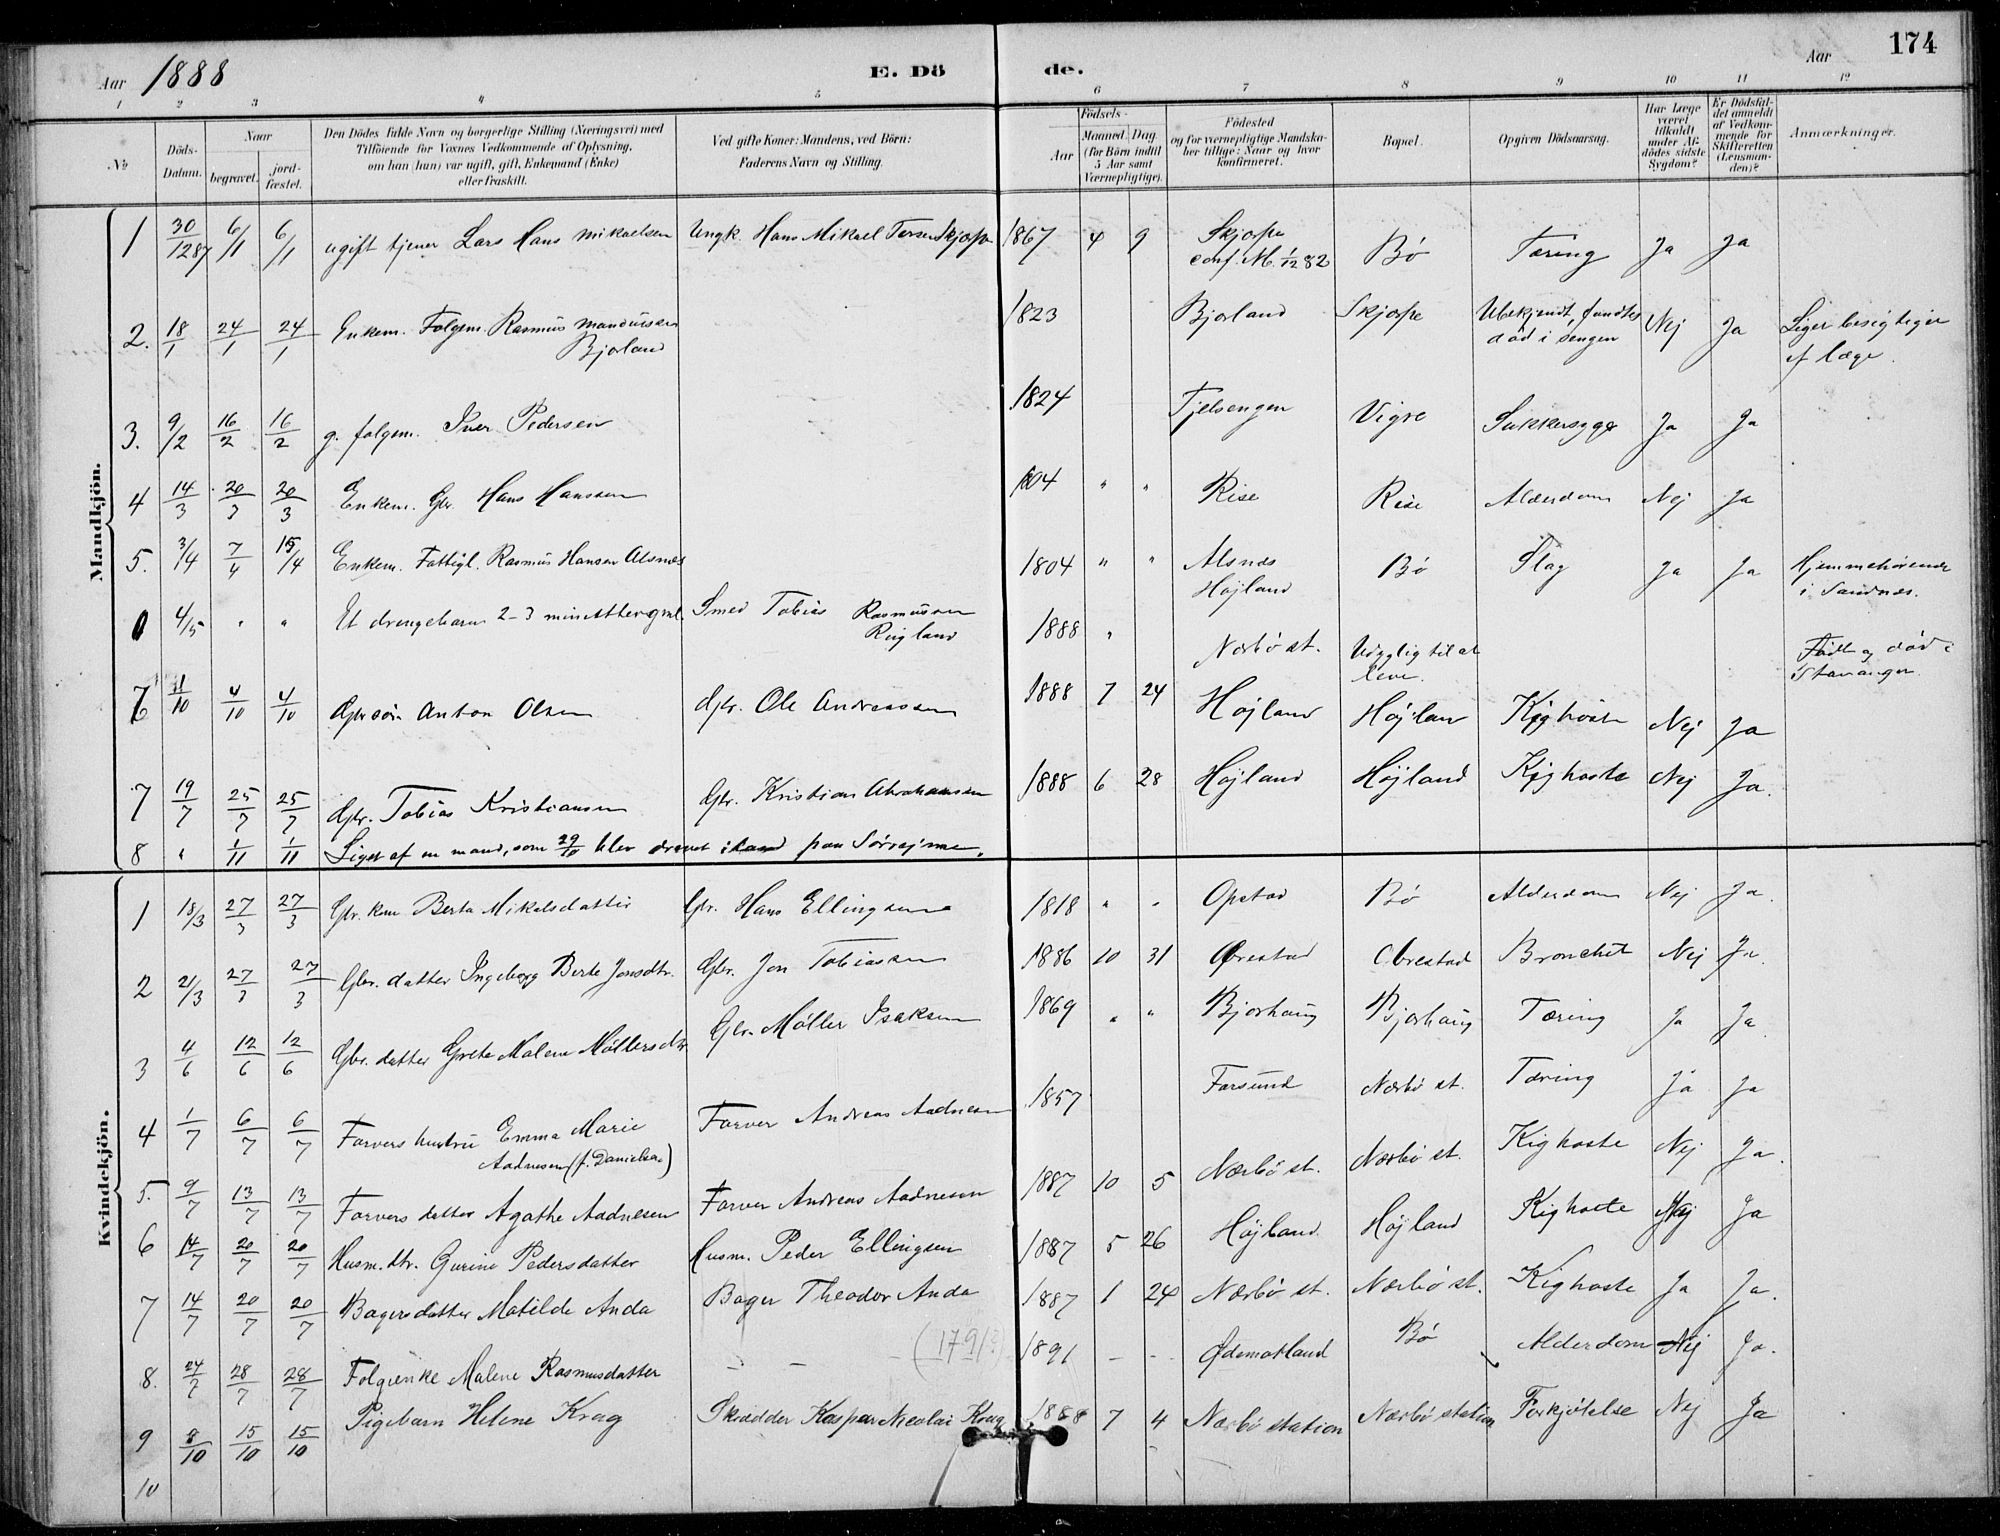 174
Aar 1888
E. Dö
de.
Aar
1 2 3 4 5 6 7 8 9 10 11 12
No
Döds-Datum.
Naar
begravet.
jord-fæstet.
Den Dödes fulde Navn og borgerlige Stilling (Næringsvei) med
Tilföiende for Voxnes Vedkommende af Oplysning,
om han (hun) var ugift, gift, Enkemand (Enke)
eller fraskilt.
Ved gifte Koner: Mandens, ved Börn:
Faderens Navn og Stilling.
Födsels-
Aar
Maaned. Dag.
(for Börn indtil 5 Aar samt Værnepligtige).
Födested
og for værnepligtige Mandskaber tillige: Naar og hvor konfirmeret.
Bopæl.
Opgiven Dödsaarsag.
Har Læge været tilkaldt under Afdödes sidste Sygdom?
Er Dödsfaldet anmeldt af Vedkommende for Skifteretten (Lensmanden)?
Anmærkninger.
Mandkjön.
1 30/12 87 6/1 6/1 ugift tjener Lars Hans Mikaelsen Ungk. Hans Mikael Torsen Skjærpe 1867 4 9 Skjærpe conf. M. 1/12 82 Bø Tæring Ja Ja
2. 18/1 24/1 24/1 Enkem. Folgem. Rasmus Mandiusen Bjorland 1823 Bjorland Skjærpe Ubekjendt, fandtes død i sengen Nej Ja Liget besigtiget af læge.
3. 9/2 16/2 16/2 g. folgem. Iver Pedersen 1824 Tjelsengen Vigre Sukkersyge Ja Ja
4 14/3 20/3 20/3 Enkem. Gbr. Hans Hanssen 1804 " " Rise Rise Alderdom Nej Ja
5. 3/4 7/4 15/4 Enkem. Fattigl. Rasmus Hansen Alsnes 1804 " " Alsnes Højland Bø Slag Ja Ja Hjemmehørende i Sandnes.
0 4/5 " " Et drengebarn 2-3 minutter gml. Smed Tobias Rasmussen Ringland 1888 " Nærbø st. Udygtig til at leve. Født og død i Stavanger.
6 4/10 4/10 Gbr søn Anton Olsen Gbr. Ole Andreassen 1888 7 24 Højland Højland Kighoste Nej Ja
7 19/7 25/7 25/7 Gbr. Tobias Kristiansen Gbr. Kristian Abrahamsen 1888 6 28 Højland Højland Kighoste Nej Ja.
8 " 1/11 1/11 Liget af en mand, som 29/10 blev drevet iland paa
Kvindekjön.
1 18/3 27/3 27/3 Gbr. kone Berta Mikalsdatter Gbr. Hans Ellingsen 1818 " " Opstad Bø Alderdom Nej Ja.
2 21/3 27/3 27/3 Gbr. datter Ingeborg Berte Jonsdtr. Gbr. Jon Tobiassen 1886 10 31 Obrestad Obrestad Bronchit Nej Ja.
3 4/6 12/6 12/6 Gbr. datter Grete Malene Møllersdtr Gbr. Møller Isaksen 1869 " " Bjorhaug Bjorhaug Tæring Ja Ja.
4 1/7 6/7 6/7 Farvers hustru Emma Marie Aadnesen (f. Danielsen) Farver Andreas Aadnesen 1857 Farsund Nærbø st. Tæring Ja Ja
5. 9/7 13/7 13/7 Farvers datter Agathe Aadnesen Farver Andreas Aadnesen 1887 10 5 Nærbø st. Nærbø st. Kighoste Nej Ja.
6 14/7 20/7 20/7 Husm. dtr. Gurine Pedersdatter Husm. Peder Ellingsen 1887 5 26 Højland Højland Kighoste Nej Ja
7 14/7 20/7 20/7 Bagersdatter Matilde Anda Bager Theodor Anda 1887 1 24 Nærbø st. Nærbø st. Kighoste Ja Ja.
8. 24/7 28/7 28/7 Folgeenke Malene Rasmusdatter – – – (1791?) 1891 – – Ødemotland Bø Alderdom Nej Ja.
9 8/10 15/10 15/10 Pigebarn Helene Krag Skrædder Kaspar Nicolai Krag 1888 7 4 Nærbø station Nærbø station Forkjølelse Nej Ja
10